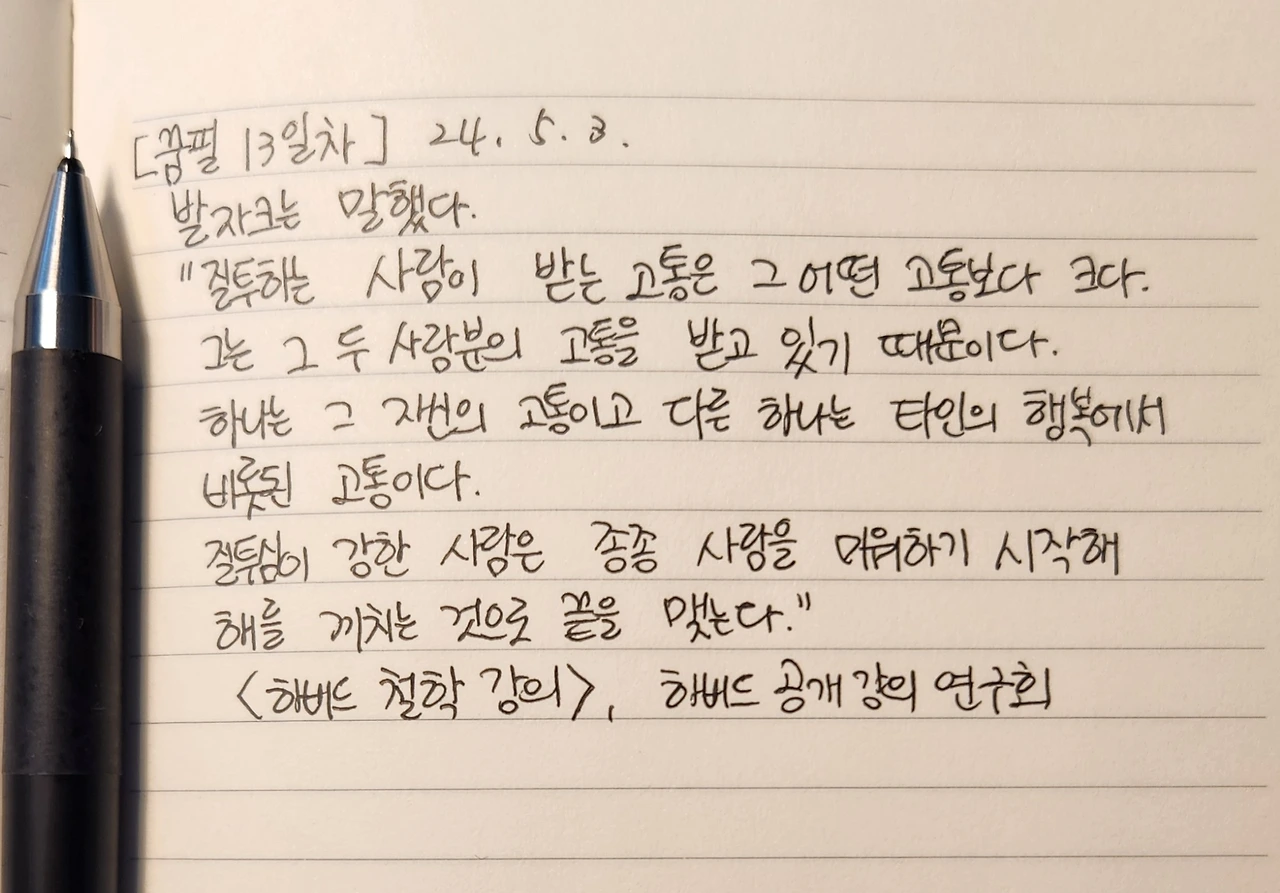 [꿈필 13일차] 24. 5. 3.
발자크는 말했다.
"질투하는 사람이 받는 고통은 그 어떤 고통보다 크다.
그는 그 두 사람분의 고통을 받고 있기 때문이다.
하나는 그 자신의 고통이고 다른 하나는 타인의 행복에서
비롯된 고통이다.
질투심이 강한 사람은 종종 사람을 미워하기 시작해
해를 끼치는 것으로 끝을 맺는다."
<하버드 철학 강의>, 하버드 공개 강의 연구회